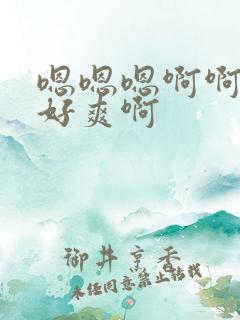 嗯嗯嗯啊啊
好爽啊
御井烹香
未经同意禁止转载